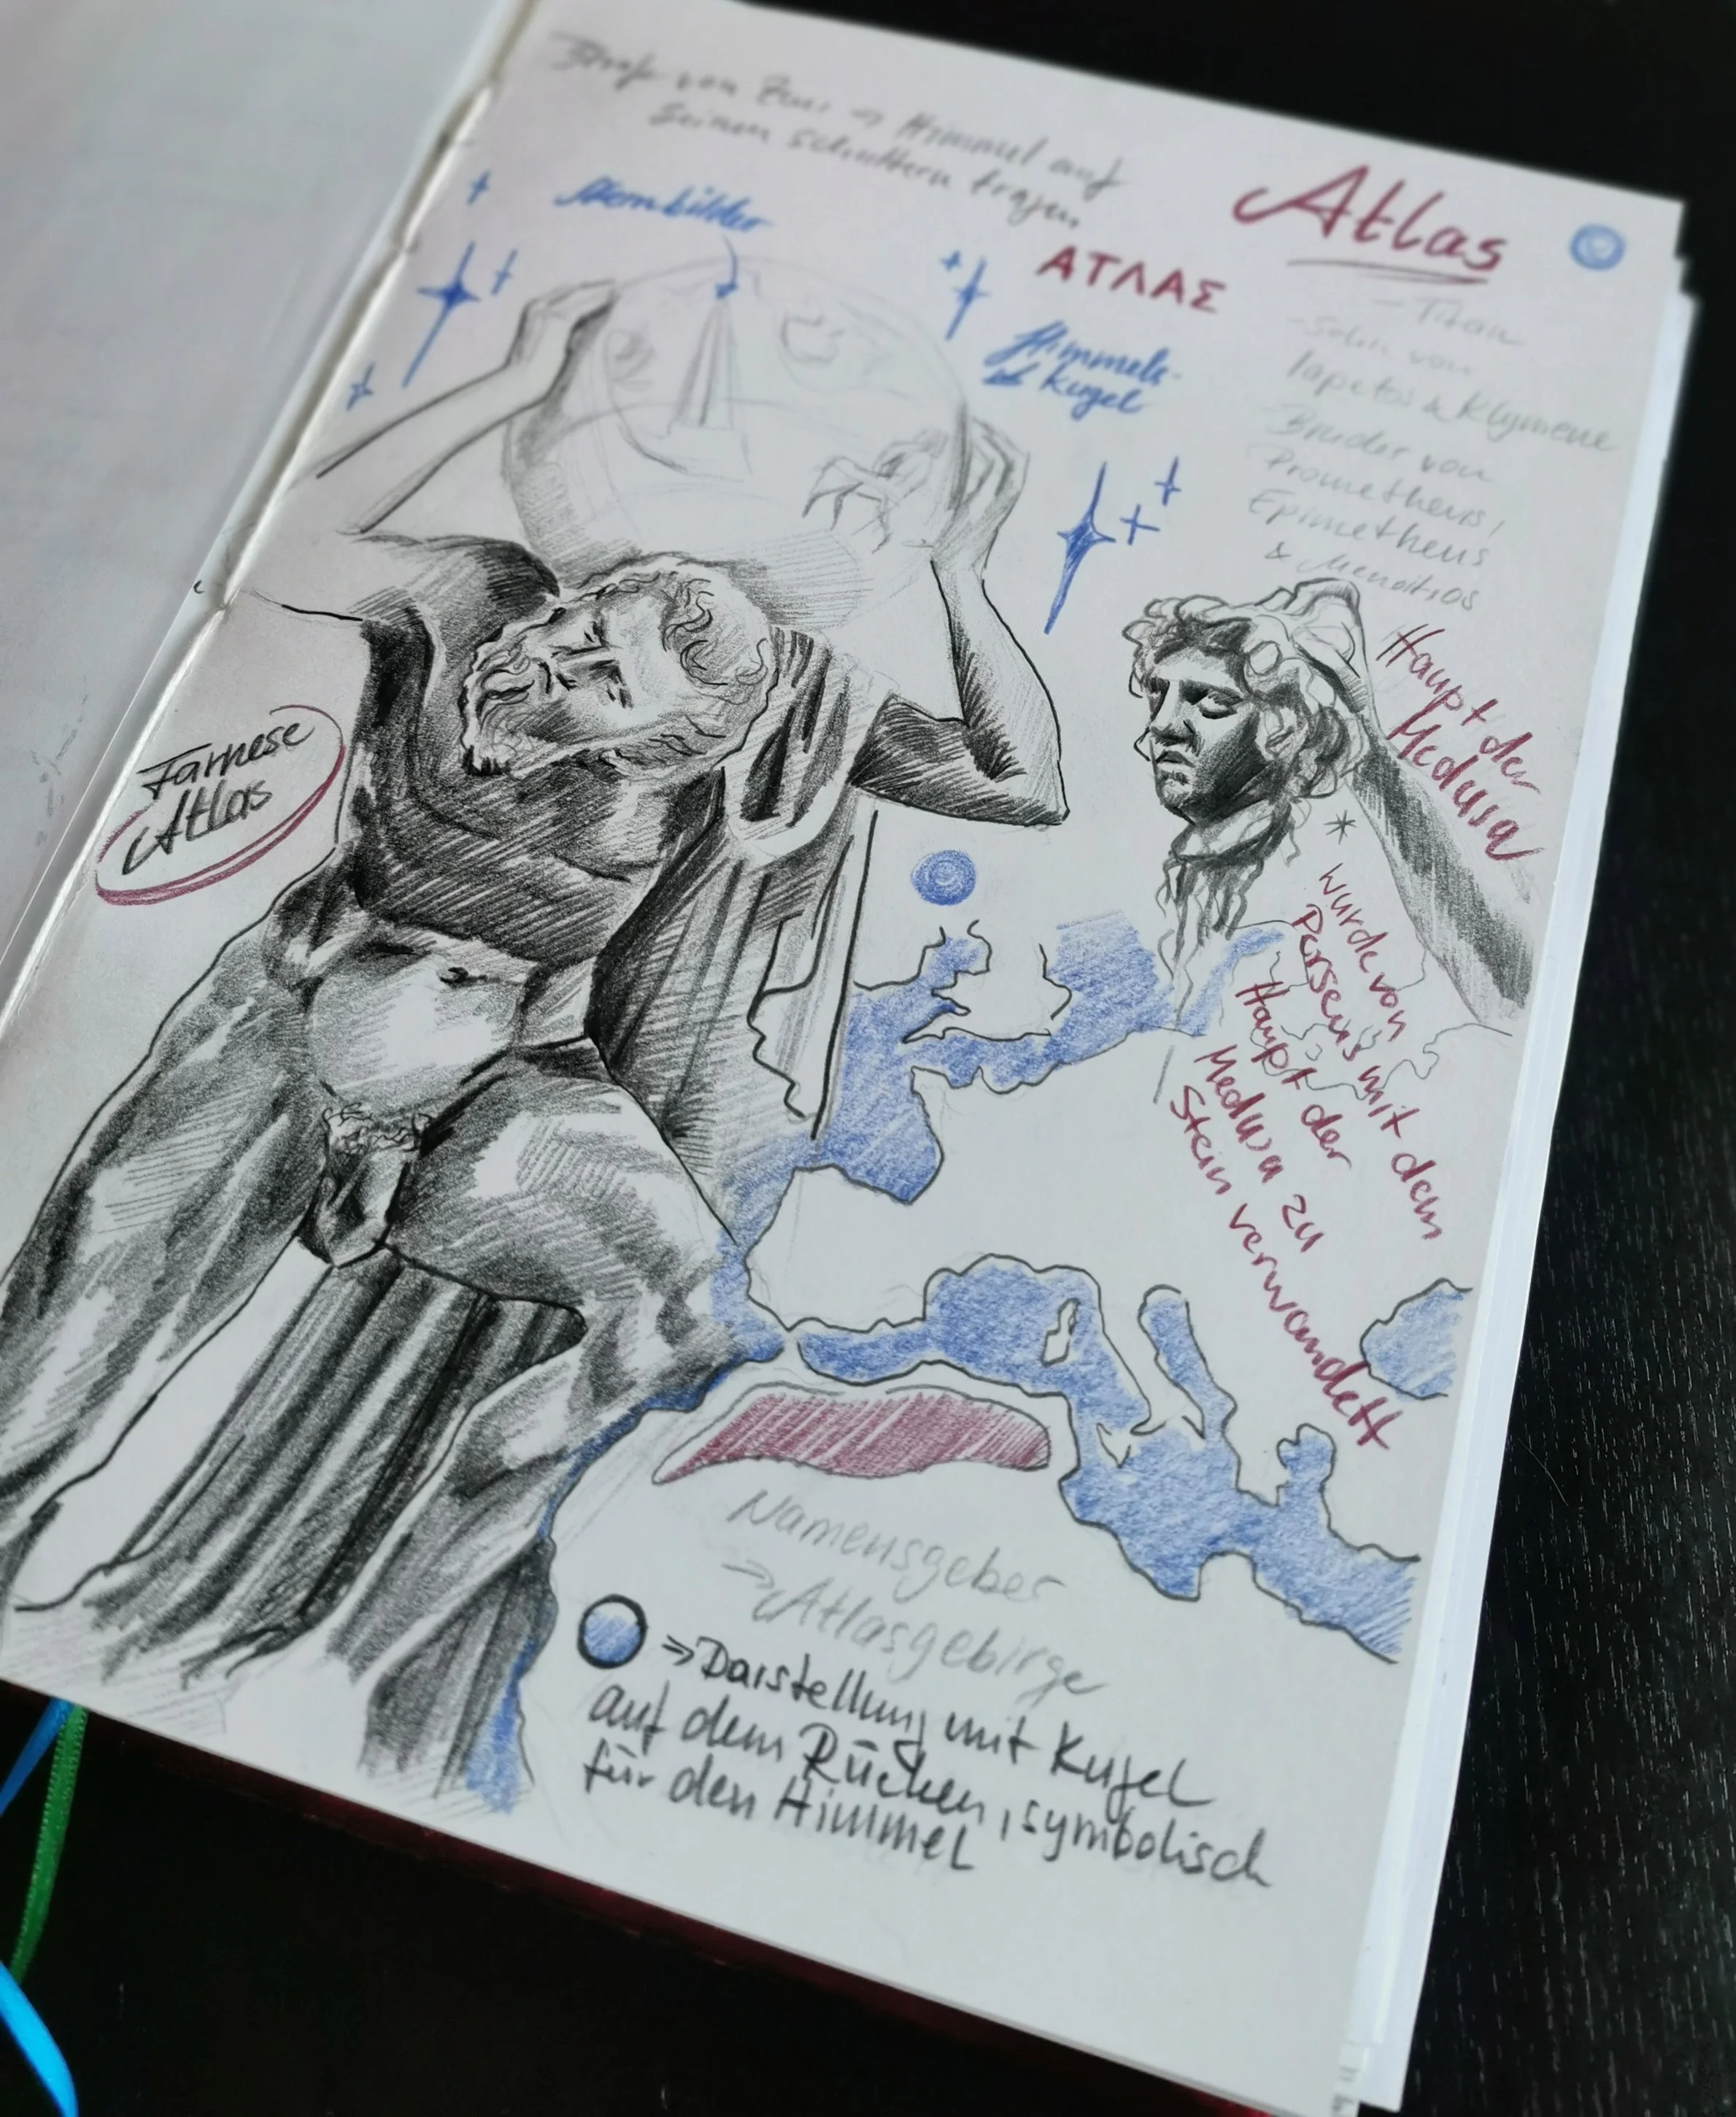 Strafe von Zeus → Himmel auf
seinen Schultern tragen
Atlas
ΑΤΛΑΣ
Sternbilder
Himmels-
kugel
- Titan
- Sohn von
Iapetos & Klymene
Bruder von
Prometheus,
Epimetheus
& Menoitios
Haupt der
Medusa
* wurde von
Perseus mit dem
Haupt der
Medusa zu
Stein verwandelt
Farnese
Atlas
Namensgeber
→ Atlasgebirge
⇒ Darstellung mit Kugel
auf dem Rücken, symbolisch
für den Himmel